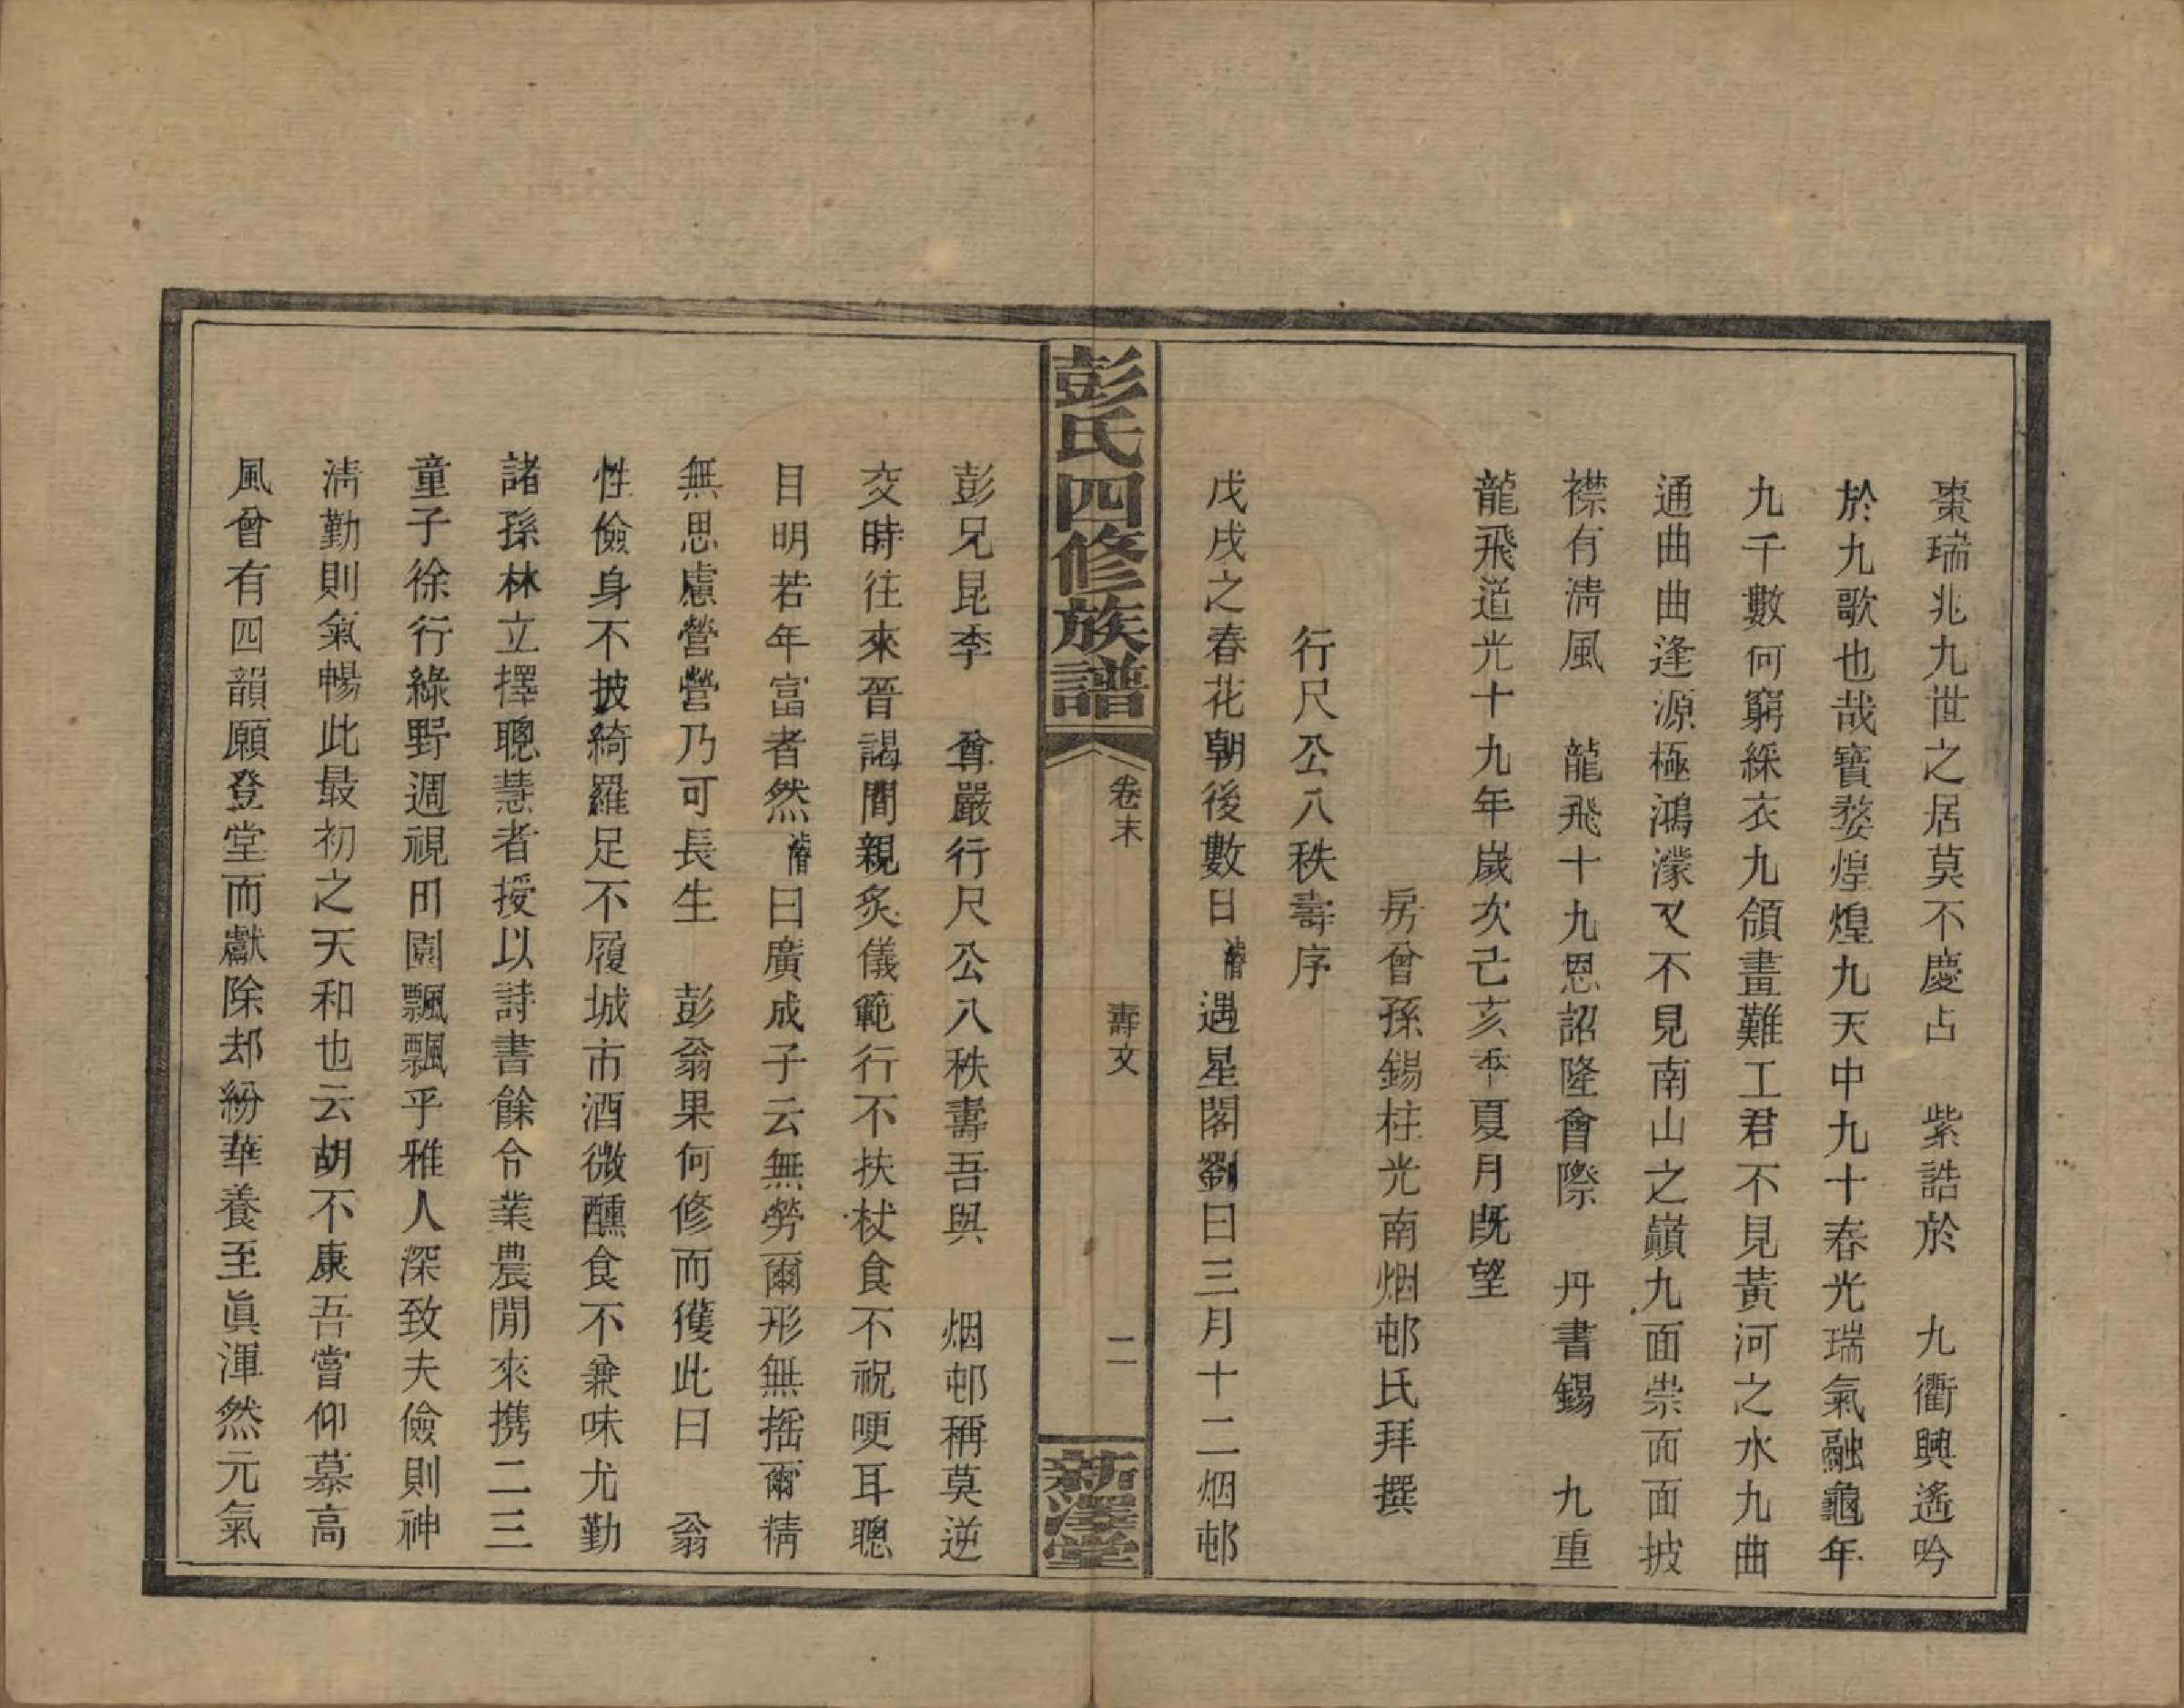 棗瑞兆九世之居莫不慶占　紫誥於　九衢興遙吟
於九歌也哉寶婺煌煌九天中九十春光瑞氣融龜年
九千數何窮綵衣九領畫難工君不見黃河之水九曲
通曲曲逢源極鴻濛又不見南山之巔九面崇面面披
襟有清風　龍飛十九恩詔隆會際　丹書錫　九重
龍飛道光十九年歲次己亥季夏月旣望
房曾孫錫柱光南烟邨氏拜撰
行尺公八秩壽序
戊戌之春花朝後數日遇星閣劉曰三月十二烟邨
彭氏四修族譜
卷末
壽文
二
新澤堂
彭兄昆季　尊嚴行尺公八秩壽吾與　烟邨稱莫逆
交時往來晉謁間親炙儀範行不扶杖食不祝哽耳聰
目明若年富者然曰廣成子云無勞爾形無搖爾精
無思慮營營乃可長生　彭翁果何修而獲此曰　翁
性儉身不披綺羅足不履城市酒微醺食不兼味尤勤
諸孫林立擇聰慧者授以詩書餘令業農閒來携二三
童子徐行綠野週視田園飄飄乎雅人深致夫儉則神
清勤則氣暢此最初之天和也云胡不康吾嘗仰慕高
風曾有四韻願登堂而獻除却紛華養至眞渾然元氣